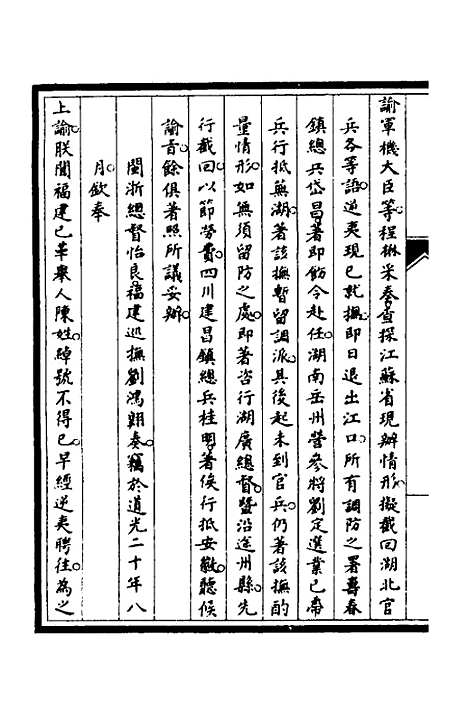 諭軍機大臣等程楙采奏查探江蘇省現辦情形擬截回湖北官
兵各等語逆夷現已就撫即日退出江口所有調防之署壽春
鎮總兵岱昌著即飭令赴任湖南岳州營參將劉定選業已帶
兵行抵蕪湖著該撫暫留調派其後起未到官兵仍著該撫酌
量情形如無須留防之處即著咨行湖廣總督暨沿途州縣先
行截回以節勞費四川建昌鎮總兵桂明著俟行抵安徽聽候
諭旨餘俱著照所議妥辦
閩浙總督怡良福建巡撫劉鴻翱奏竊於道光二十年八
月欽奉
上諭朕聞福建已革舉人陳姓綽號不得已早經逆夷聘往為之